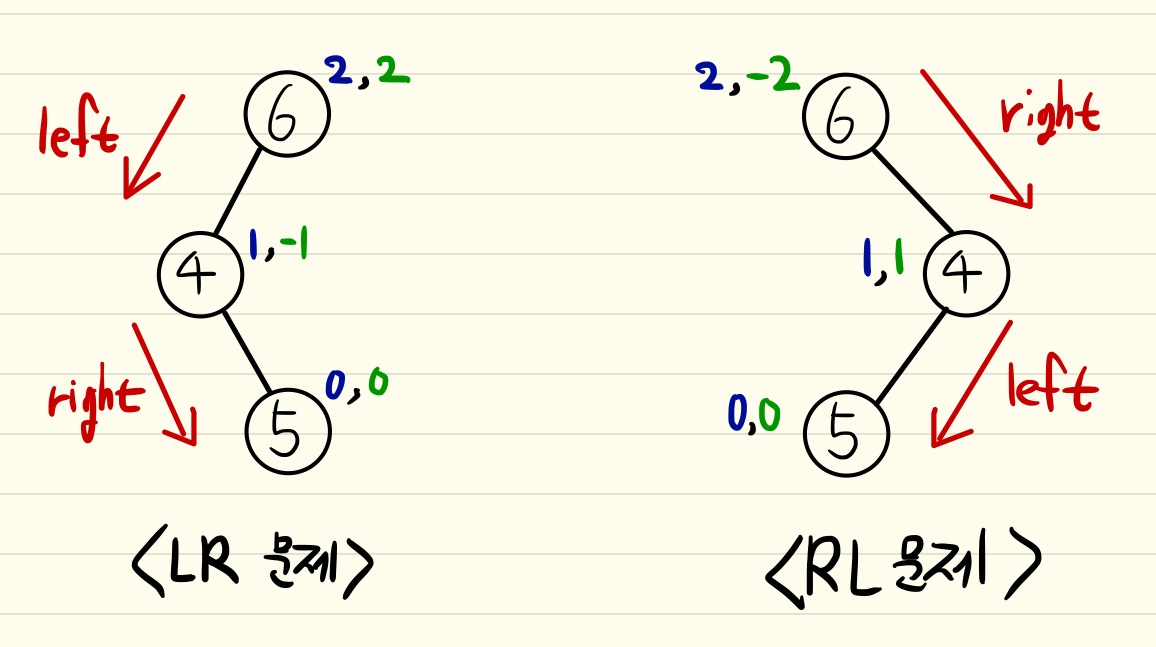 6 2,2
left
4 1,-1
right
5 0,0
<LR 문제>
2,-2 6
right
1,1 4
left
0,0 5
<RL 문제>